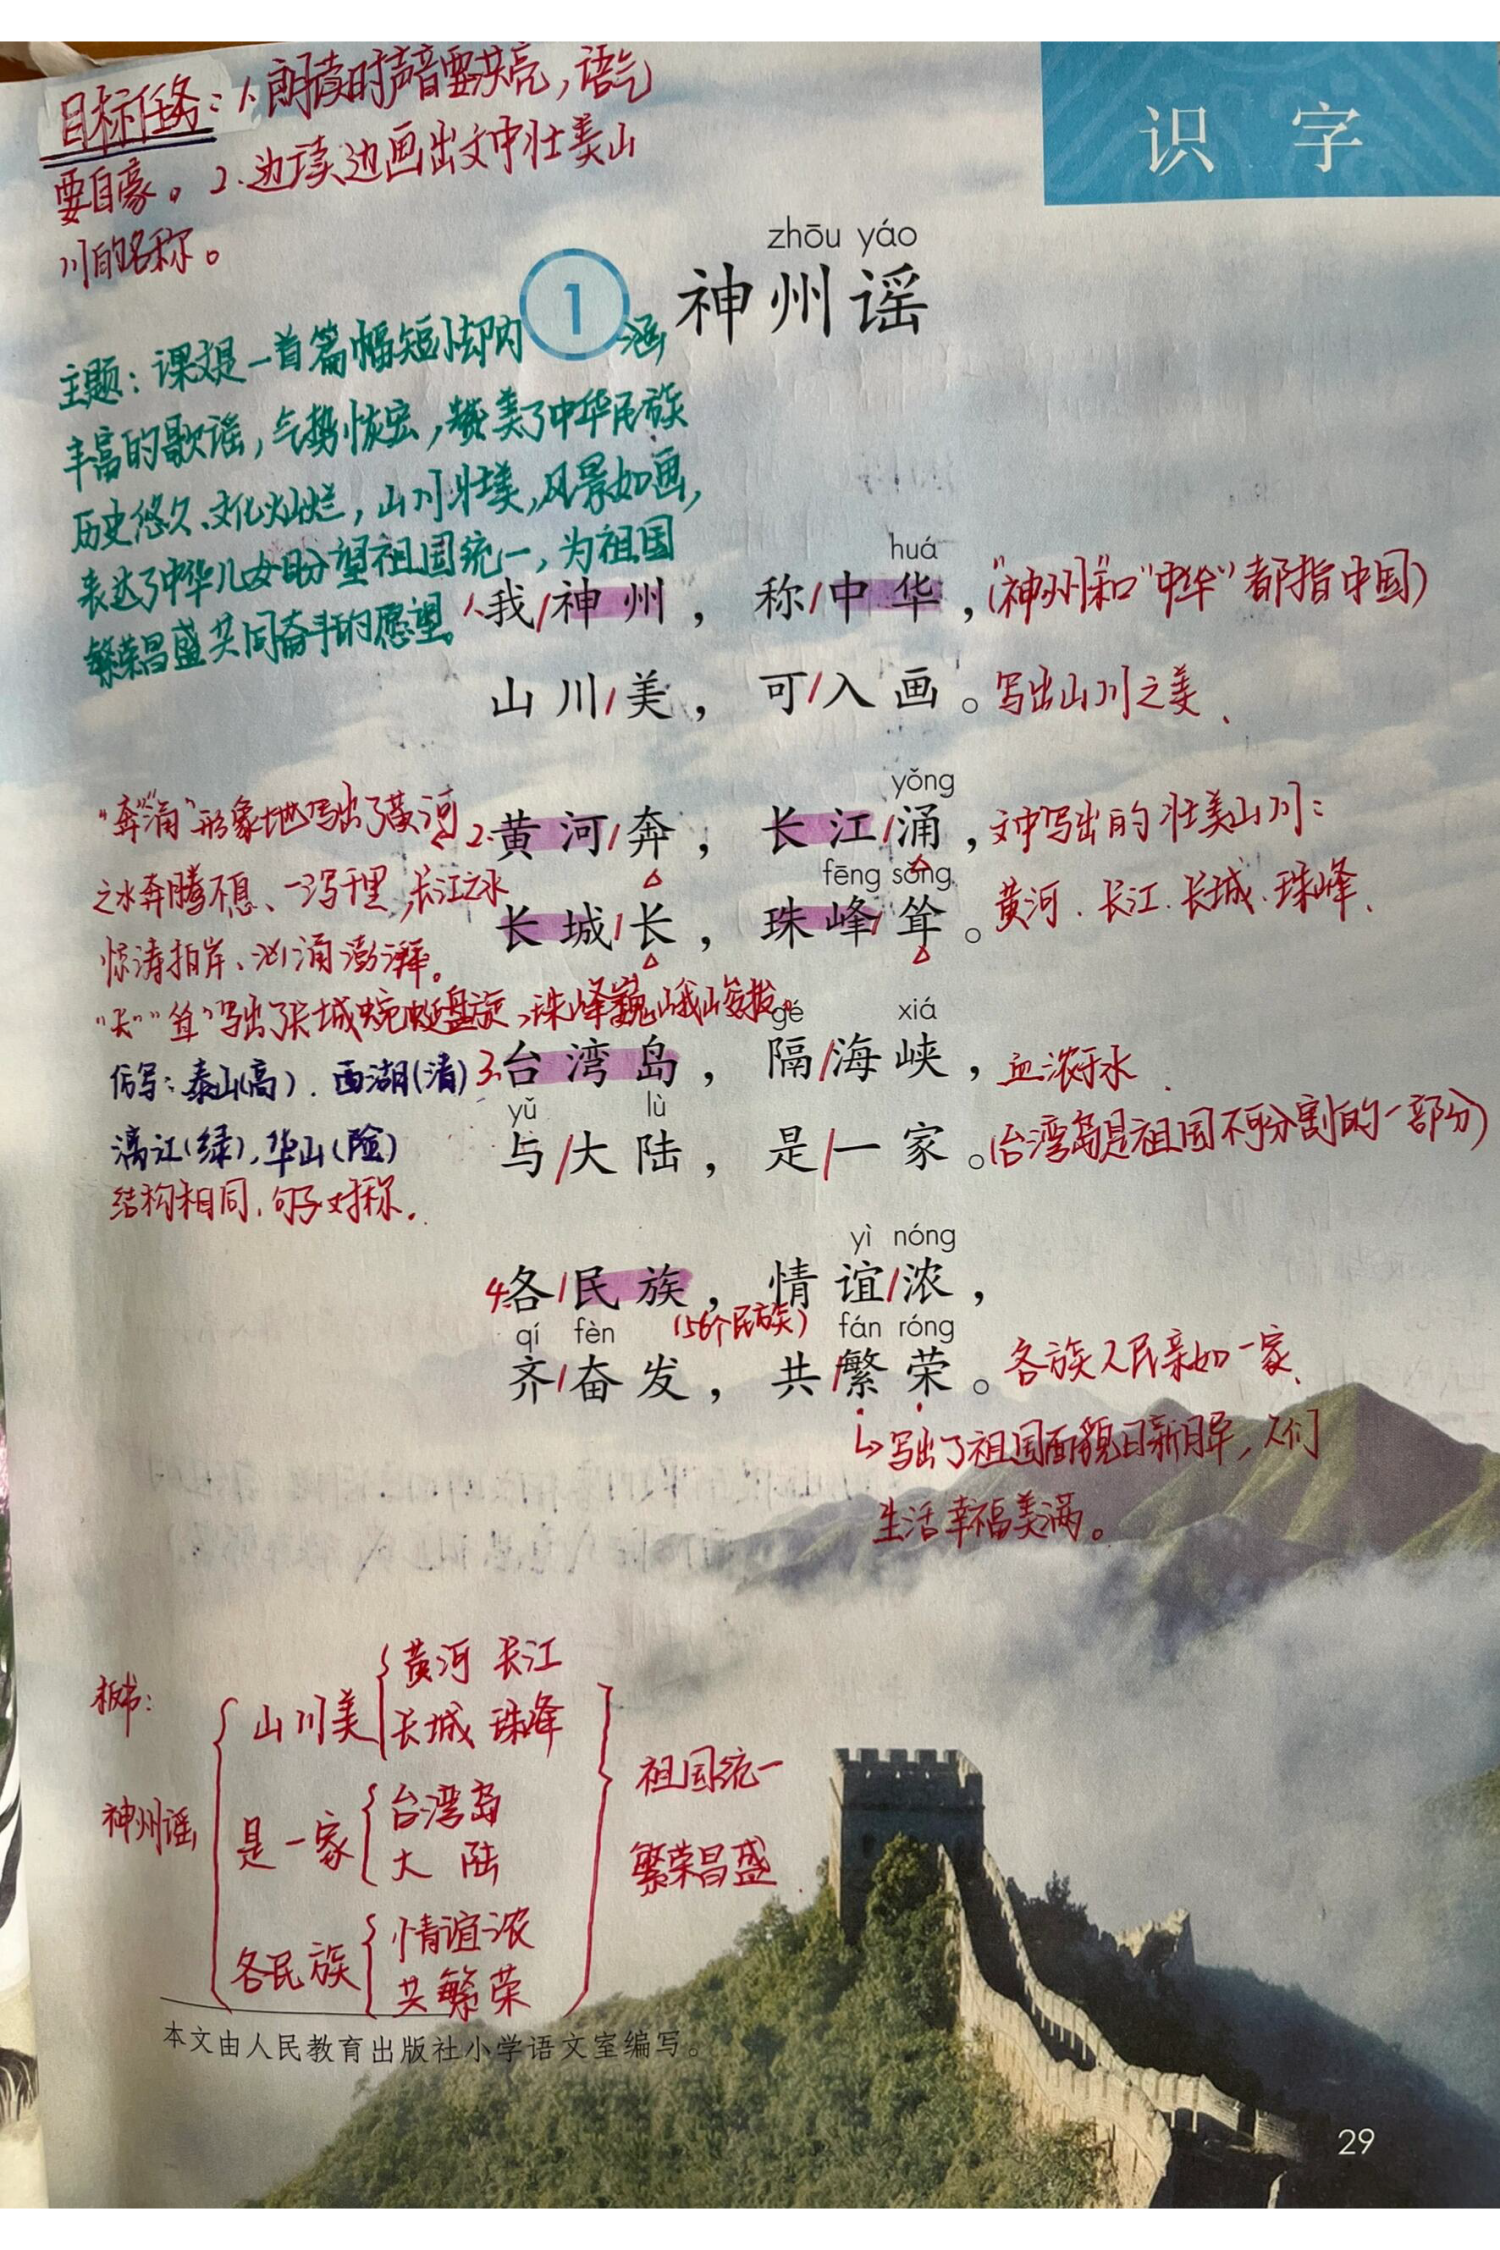 目标任务：1、朗读时声音要洪亮，语气
要自豪。2、边读边画出文中壮美山
川的名称。
识字
zhōu yáo
1 神州谣
主题：课文是一首篇幅短小却内涵
丰富的歌谣，气势恢宏，赞美了中华民族
历史悠久、文化灿烂，山川壮美，风景如画，
表达了中华儿女盼望祖国统一，为祖国
繁荣昌盛共同奋斗的愿望。
huá
1、我/神州，称/中华，（"神州"和"中华"都指中国）
山川/美，可/入画。写出山川之美、
yǒng
"奔""涌"形象地写出了黄河
2、黄河/奔，长江/涌，文中写出的壮美山川：
之水奔腾不息、一泻千里，长江之水
fēng sǒng
长城/长，珠峰/耸。黄河、长江、长城、珠峰、
惊涛拍岸、汹涌澎湃。
"长""耸"写出了长城蜿蜒盘旋，珠峰巍峨峻拔。
gé xiá
仿写：泰山（高）、西湖（清）
3、台湾岛，隔/海峡，血浓于水、
yǔ lù
漓江（绿），华山（险）
与/大陆，是/一家。（台湾岛是祖国不可分割的一部分）
结构相同，句子对称。
yì nóng
4、各/民族，情谊/浓，
（56个民族）
qí fèn fán róng
齐/奋发，共/繁荣。各族人民亲如一家、
↳写出了祖国面貌日新月异，人们
生活幸福美满。
板书：
神州谣
山川美 黄河 长江
长城 珠峰
是一家 台湾岛
大陆
各民族 情谊浓
共繁荣
祖国统一
繁荣昌盛
本文由人民教育出版社小学语文室编写。
29